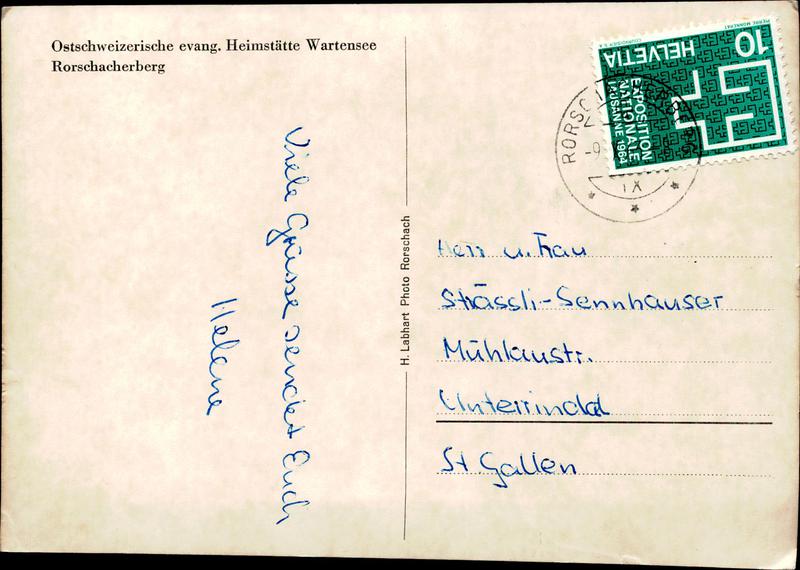 Ostschweizerische evang. Heimstätte Wartensee
Rorschacherberg
Viele Grüsse sendet Euch
Helene
H. Labhart Photo Rorschach
PIERRE MONNERAT
COURVOISIER S.A.
10
HELVETIA
EXPOSITION
NATIONALE
LAUSANNE 1964
RORSCHACHERBERG
-9.
IX
Herr u. Frau
Strässli-Sennhauser
Mühlaustr.
Unterrindal
St Gallen